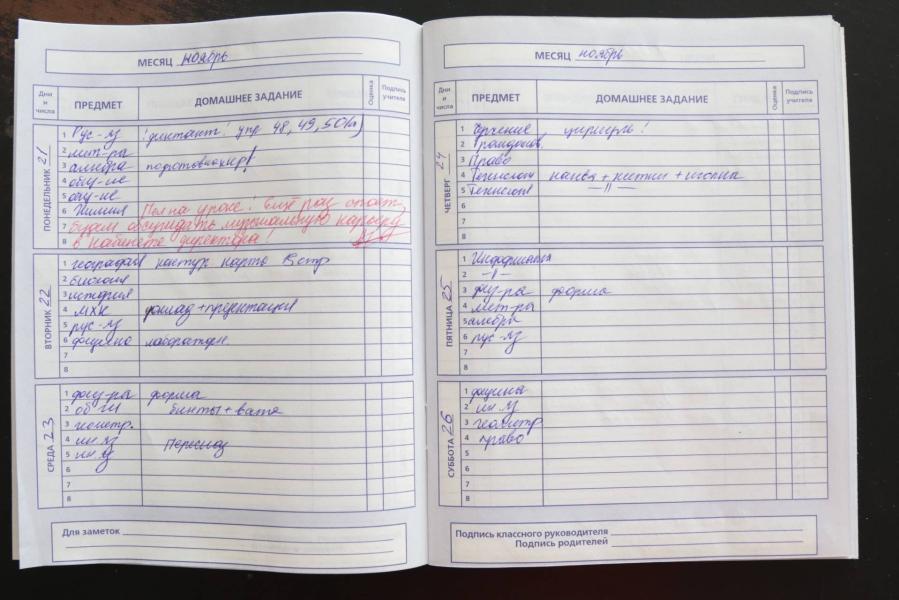 МЕСЯЦ ноябрь
Дни и числа ПРЕДМЕТ ДОМАШНЕЕ ЗАДАНИЕ Оценка Подпись учителя
ПОНЕДЕЛЬНИК 21
1 Рус-яз !диктант! упр 48, 49, 50(н)
2 лит-ра
3 алгебра подготовиться!
4 общ-ие
5 общ-ие
6 Химия Пел на уроке! Ещё раз споёт,
7 будем обсуждать музыкальную карьеру
8 в кабинете директора!
ВТОРНИК 22
1 география контур карта
2 биология
3 история
4 МХК доклад + презентация
5 рус-яз
6 физика лаборатор.
7
8
СРЕДА 23
1 физ-ра форма
2 обж бинты + вата
3 геометр.
4 ин.яз Пересказ
5 ин.яз
6
7
8
Для заметок
МЕСЯЦ ноябрь
Дни и числа ПРЕДМЕТ ДОМАШНЕЕ ЗАДАНИЕ Оценка Подпись учителя
ЧЕТВЕРГ 24
1 Черчение циркуль!
2
3 Право
4 Технология канва + нитки + иголка
5 Технология —||—
6
7
8
ПЯТНИЦА 25
1 Информатика
2 —||—
3 физ-ра форма
4 лит-ра
5 алгебра
6 рус-яз
7
8
СУББОТА 26
1 физика
2 ин.яз
3 геометр
4 право
5
6
7
8
Подпись классного руководителя
Подпись родителей